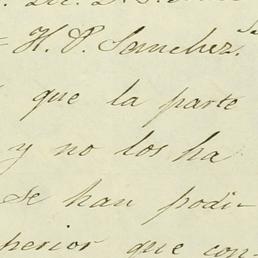 = H. P. Sanchez.
que la parte
y no los ha
se han podi-
perior que con-